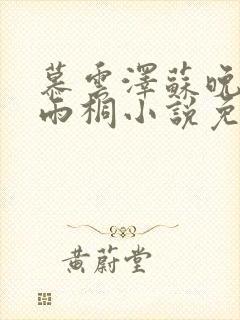 慕雲澤蘇晚
雨桐小說免
黃蔚堂